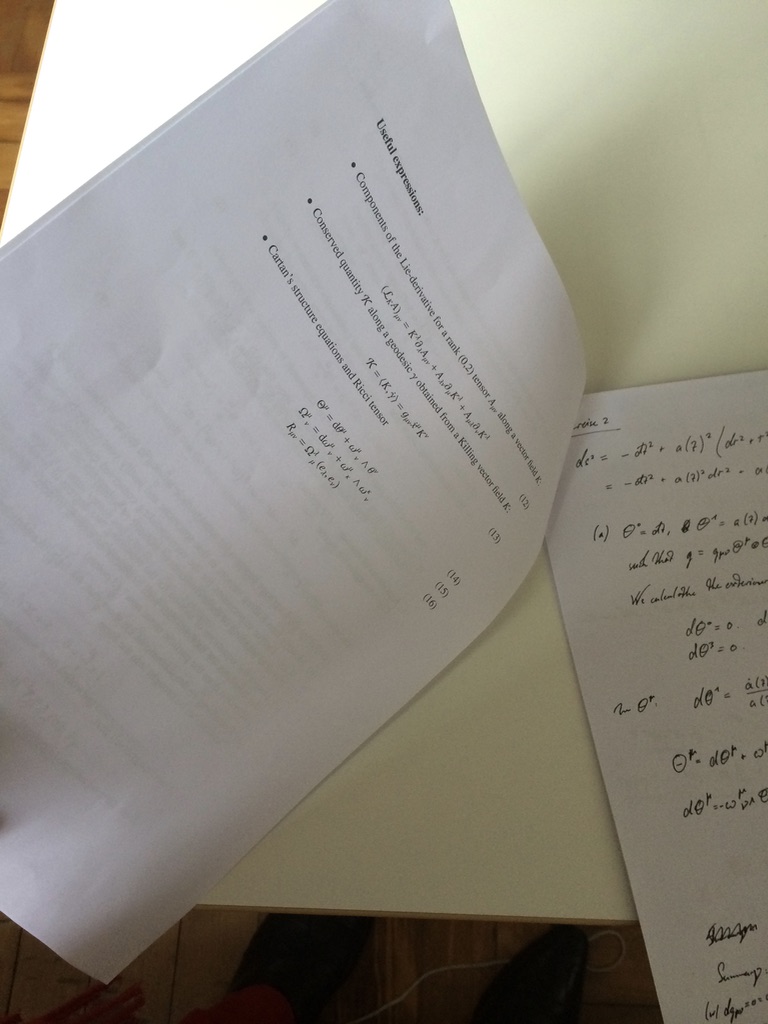 Useful expressions:
• Components of the Lie-derivative for a rank (0,2) tensor A_{μν} along a vector field K:
(ℒ_K A)_{μν} = K^λ ∂_λ A_{μν} + A_{λν} ∂_μ K^λ + A_{μλ} ∂_ν K^λ (12)
• Conserved quantity 𝒦 along a geodesic γ obtained from a Killing vector field K:
𝒦 = ⟨K, γ̇⟩ = g_{μν} ẋ^μ K^ν (13)
• Cartan's structure equations and Ricci tensor
Θ^μ = dθ^μ + ω^μ_ν ∧ θ^ν (14)
Ω^μ_ν = dω^μ_ν + ω^μ_κ ∧ ω^κ_ν (15)
R_{μν} = Ω^λ_μ (e_λ, e_ν) (16)
2
ds² = - dt² + a(t)² (dr² + r²
= - dt² + a(t)² dr² +
(a) Θ⁰ = dt, Θ¹ = a(t)
such that g =
We calculate the exterior
dΘ⁰ = 0.
dΘ³ = 0.
Θ^μ. dΘ¹ = ȧ(t) / a(t)
Θ^μ = dΘ^μ + ω^μ
dΘ^μ = -ω^μ_ν ∧ Θ
Summary